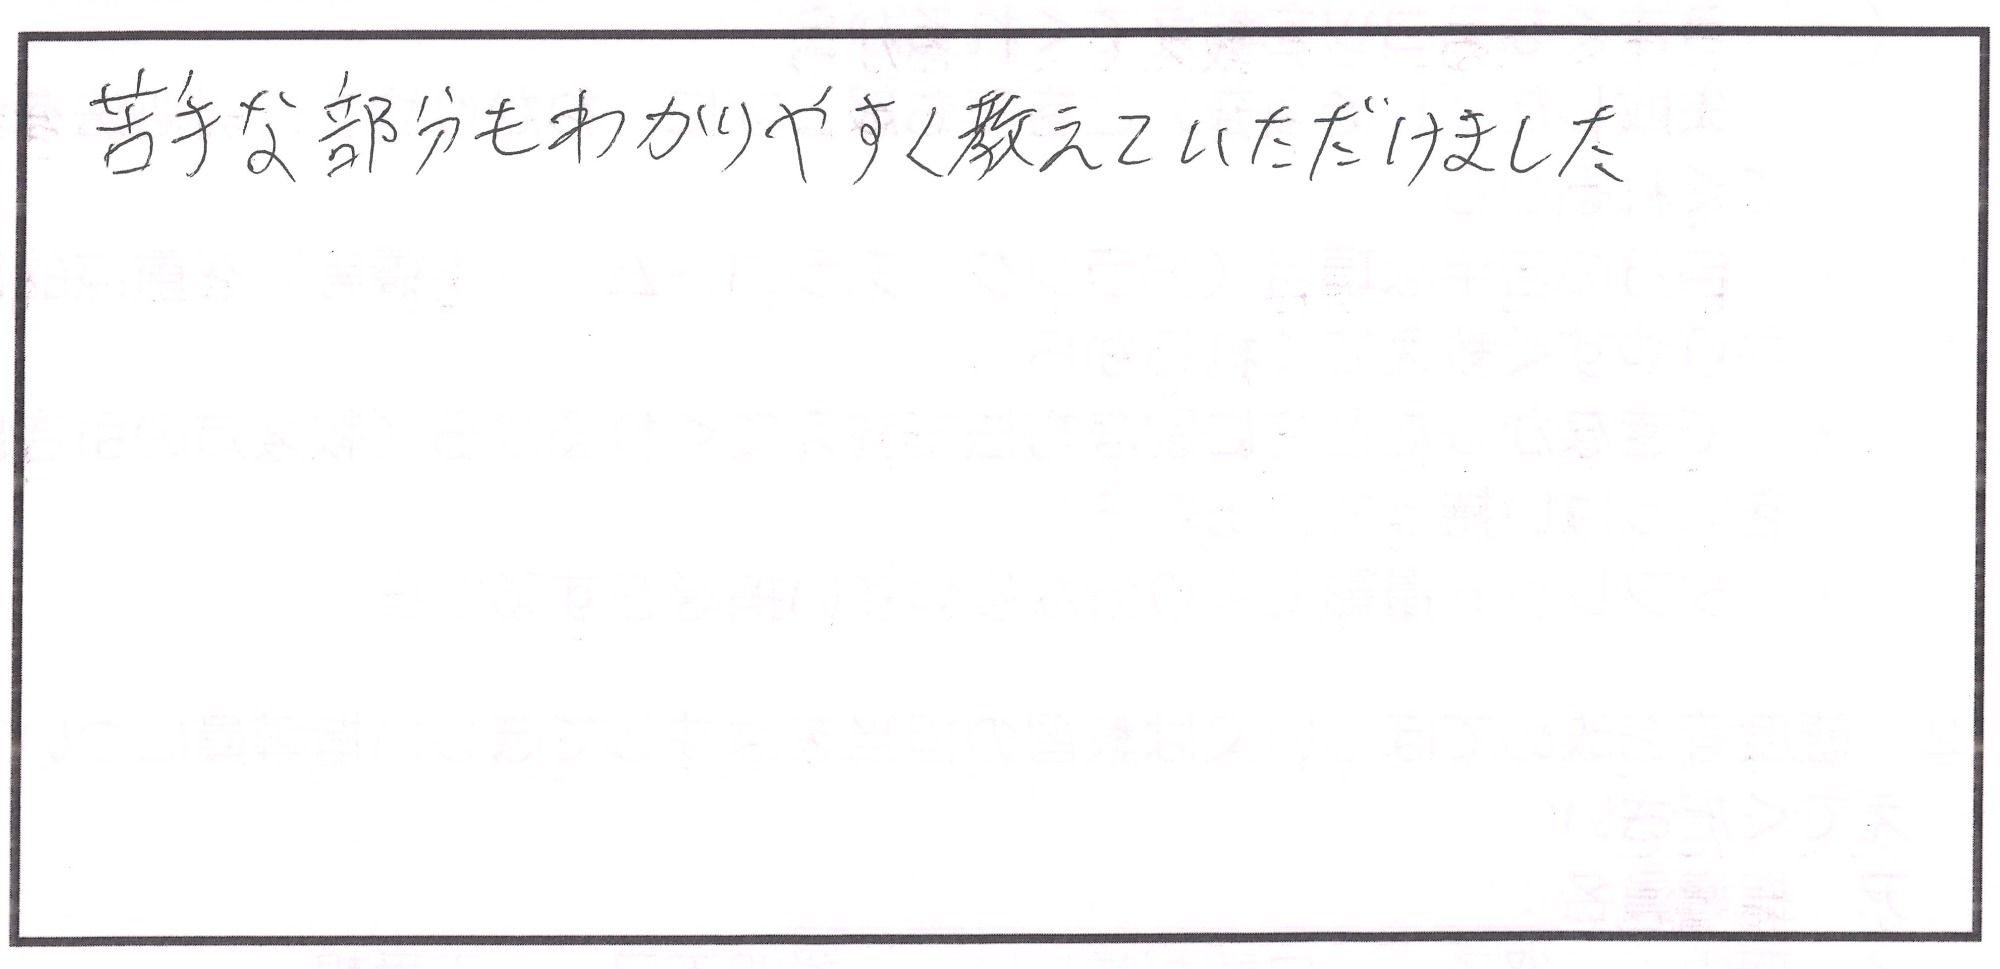 苦手な部分もわかりやすく教えていただけました